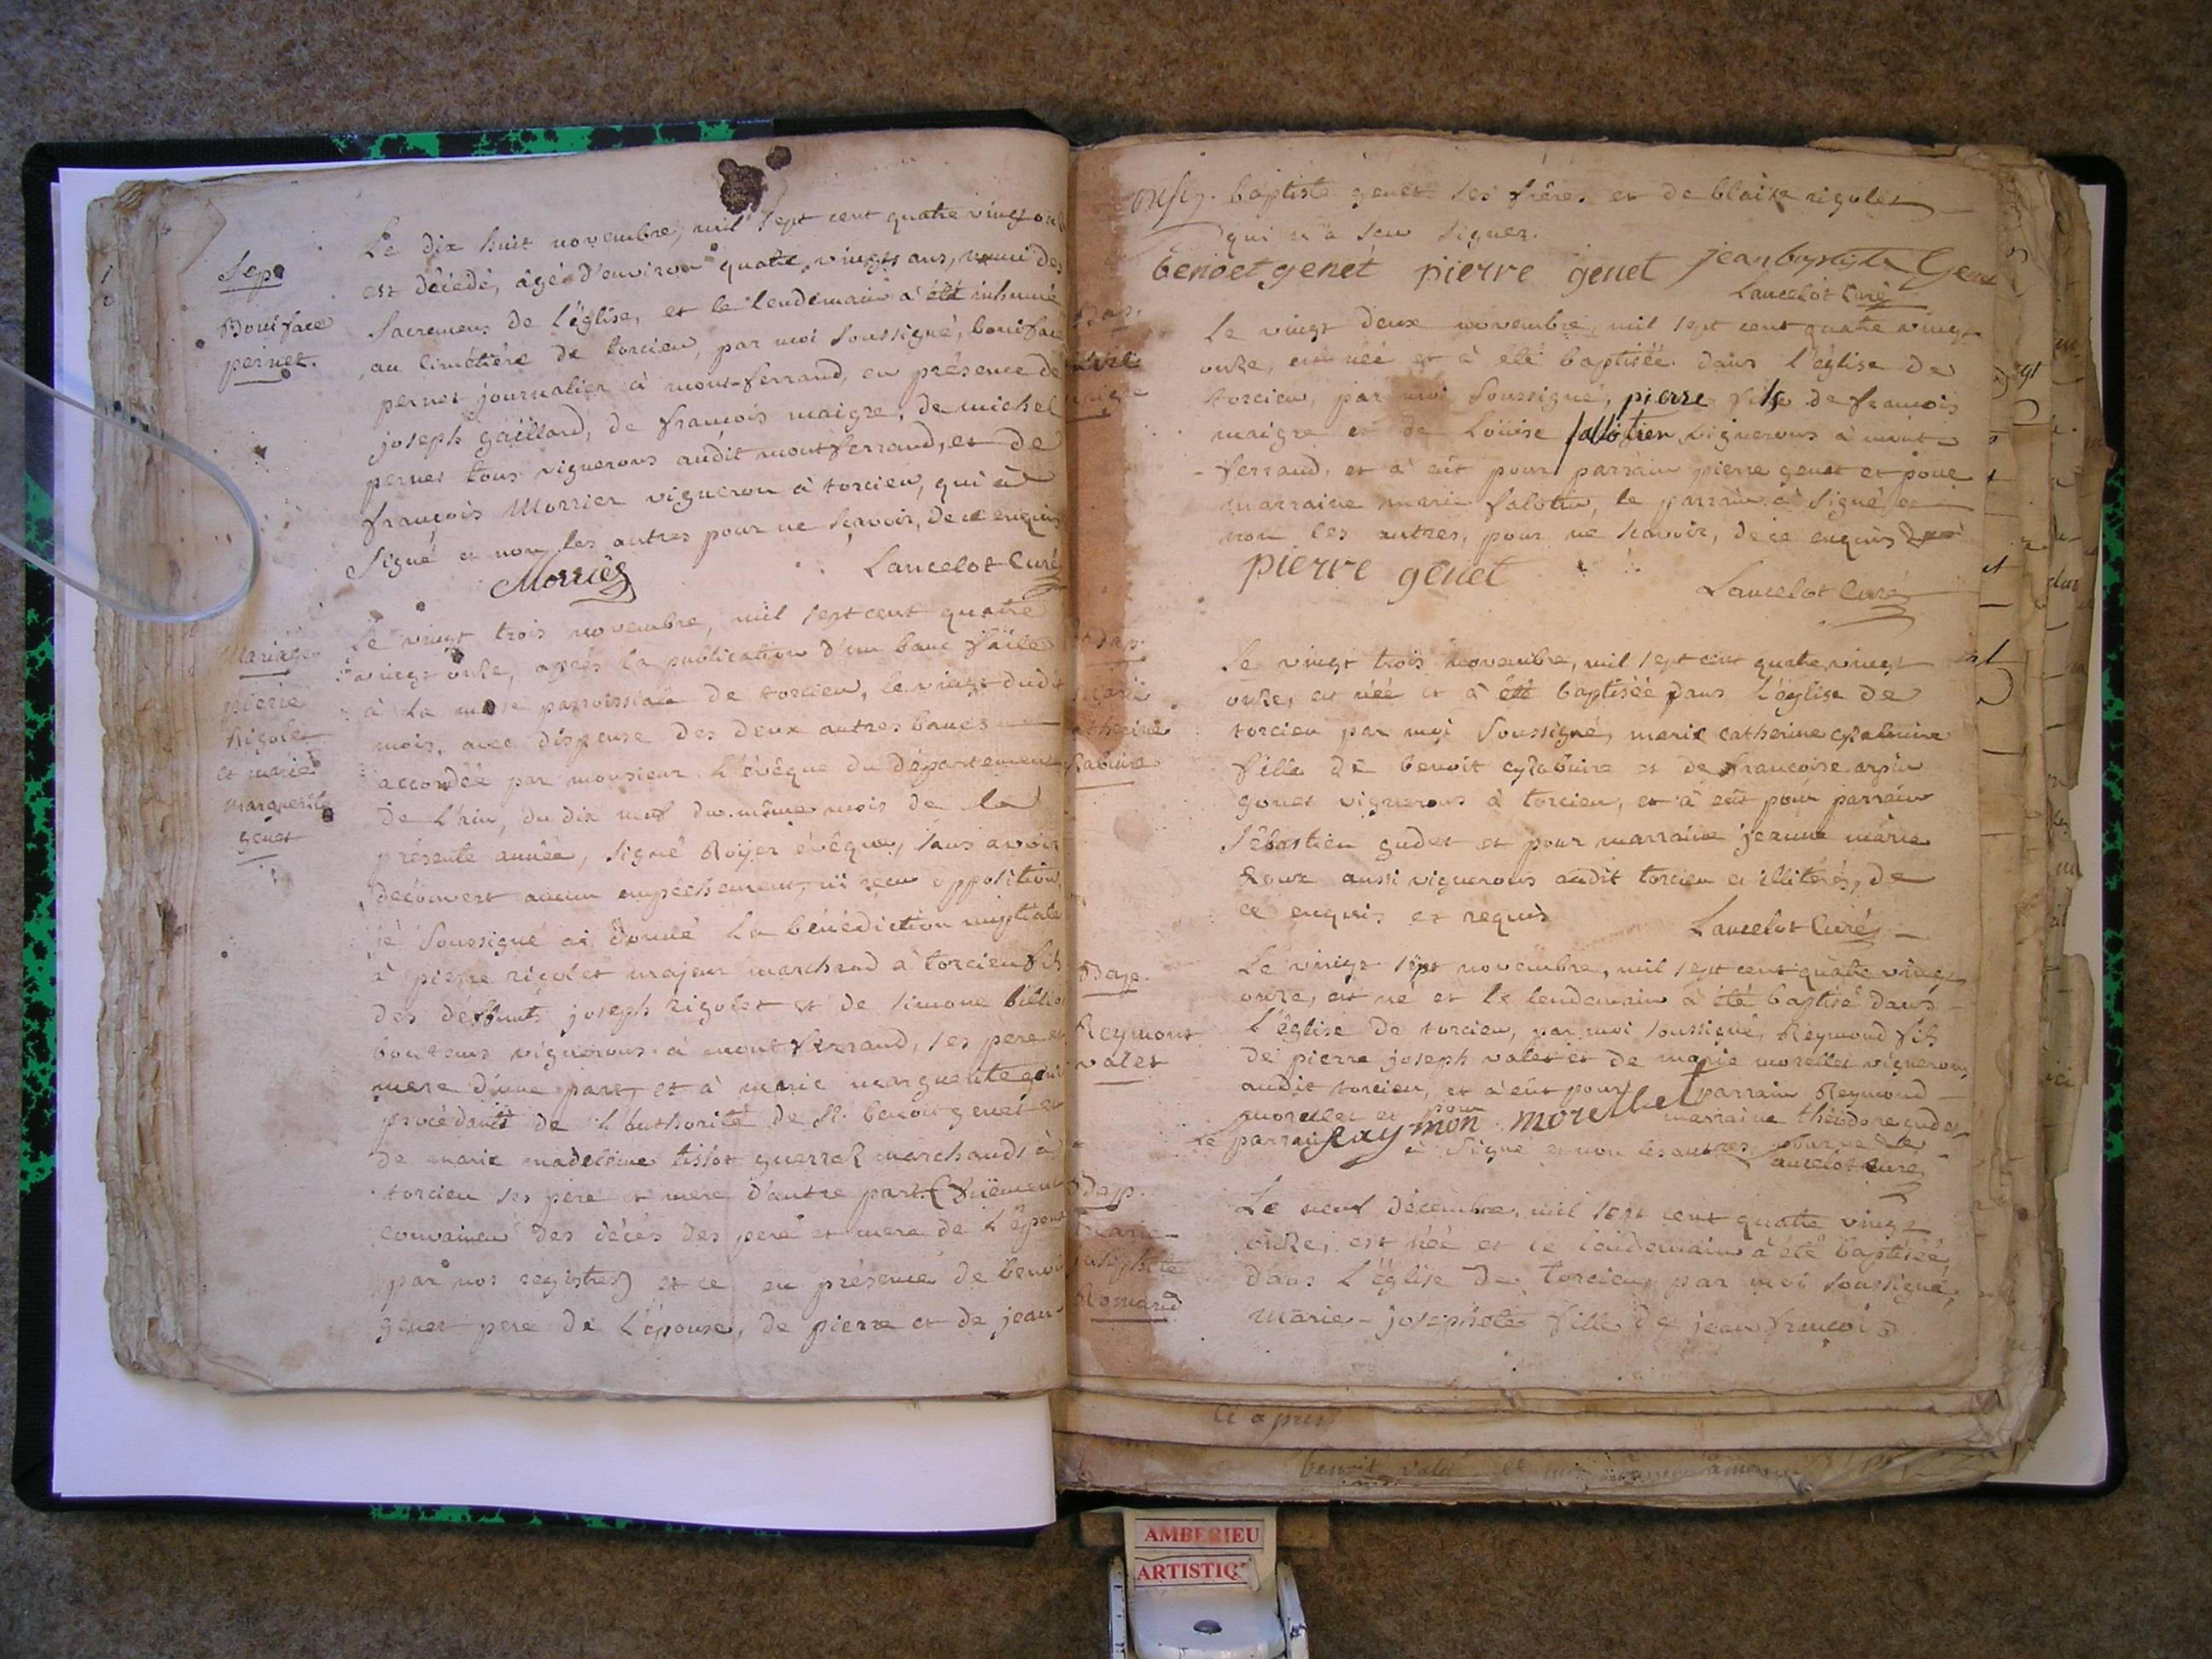 Sep.
Boniface
pernet.
Le dix huit novembre, mil sept cent quatre vingt
est décédé, âgé d'environ quatre vingts ans, muni des
Sacremens de l'église, et le lendemain à été inhumé
au cimétiére de torcieu, par moi soussigné, boniface
pernet journalier à mont-ferrand, en présence de
joseph gaillard, de françois maigre, de michel
pernet tous vignerons audit montferrand, et de
françois Morrier vigneron à torcieu, qui à
signé et non les autres pour ne sçavoir, de ce enquis
Morrier Lancelot Curé
Mariage
pierre
Rigolet
et marie
marguerite
genet
Le vingt trois novembre, mil sept cent quatre
vingt onze, aprés la publication d'un banc faite
à la messe parroissiale de torcieu, le vingt dudit
mois, avec dispense des deux autres bancs
accordée par monsieur l'évêque du département
de l'hin, du dix neuf du même mois de la
présente année, signé Royer évêque, sans avoir
découvert aucun empéchement, ni reçu opposition,
je soussigné ai donné la bénédiction nuptiale
à pierre rigolet majeur marchand à torcieu fils
des deffunts joseph rigolet et de simone
vignerons à mont ferrand, ses pere et
mere d'une part, et à marie marguerite genet
procédante de l'authorité de Sr. benoit genet et
de marie madeleine tissot marchands à
torcieu ses pere et mere d'autre part (
convaincu des décés des pere et mere de l'époux
par nos registres) et ce en présence de benoit
genet pere de l'épouse, de pierre et de jean-
baptiste genet ses frères et de blaise rigolet
qui n'a sçu signer.
benoet genet pierre genet jean baptiste Genet
Lancelot Curé
Bap.
Le vingt deux novembre, mil sept cent quatre vingt
onze, est née et à été baptisée dans l'église de
torcieu, par moi soussigné, pierre fils de françois
maigre et de Loüise vignerons à mont-
ferrand, et à eût pour parrain pierre genet et pour
marraine marie le parrain à signé et
non les autres, pour ne sçavoir, de ce enquis
pierre genet
Lancelot Curé
Bap.
marie
catherine
Le vingt trois novembre, mil sept cent quatre vingt
onze, est née et à été baptisée dans l'église de
torcieu par moi soussigné, marie catherine
fille de benoit et de françoise
vignerons à torcieu, et à eût pour parrain
Sébastien gudet et pour marraine jeanne marie
Roux aussi vignerons audit torcieu et illiterés, de
ce enquis et requis
Lancelot Curé
Bap.
Reymont
valet
Le vingt sept novembre, mil sept cent quatre vingt
onze, est né et le lendemain à été baptisé dans
l'église de torcieu, par moi soussigné, Reymond fils
de pierre joseph valet et de marie morellet vignerons
audit torcieu, et à eût pour parrain Reymond
morellet et pour marraine théodore gudet
Le parrain à signé et non les autres, pour ne
raymon morellet
Lancelot Curé
Bap.
marie-
josephete
Romand
Le neuf décembre, mil sept cent quatre vingt
onze, est née et le lendemain à été baptisée,
dans l'église de torcieu, par moi soussigné,
marie-josephete fille de jean françois
Ci apres
benoit valet
AMBERIEU
ARTISTIQ